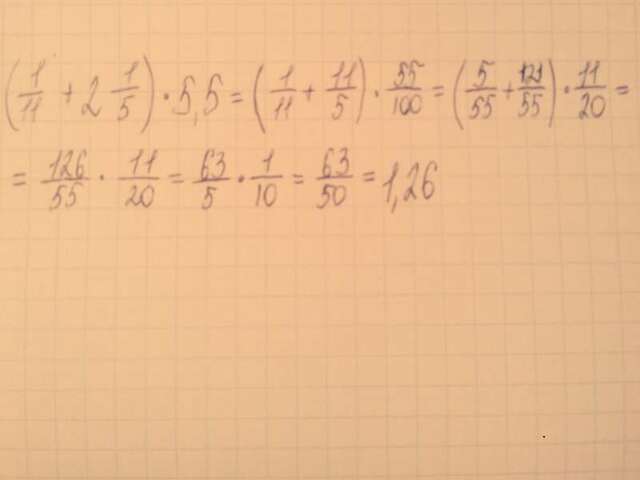 (1/11 + 2 1/5) · 5,5 = (1/11 + 11/5) · 55/100 = (5/55 + 121/55) · 11/20 =
= 126/55 · 11/20 = 63/5 · 1/10 = 63/50 = 1,26